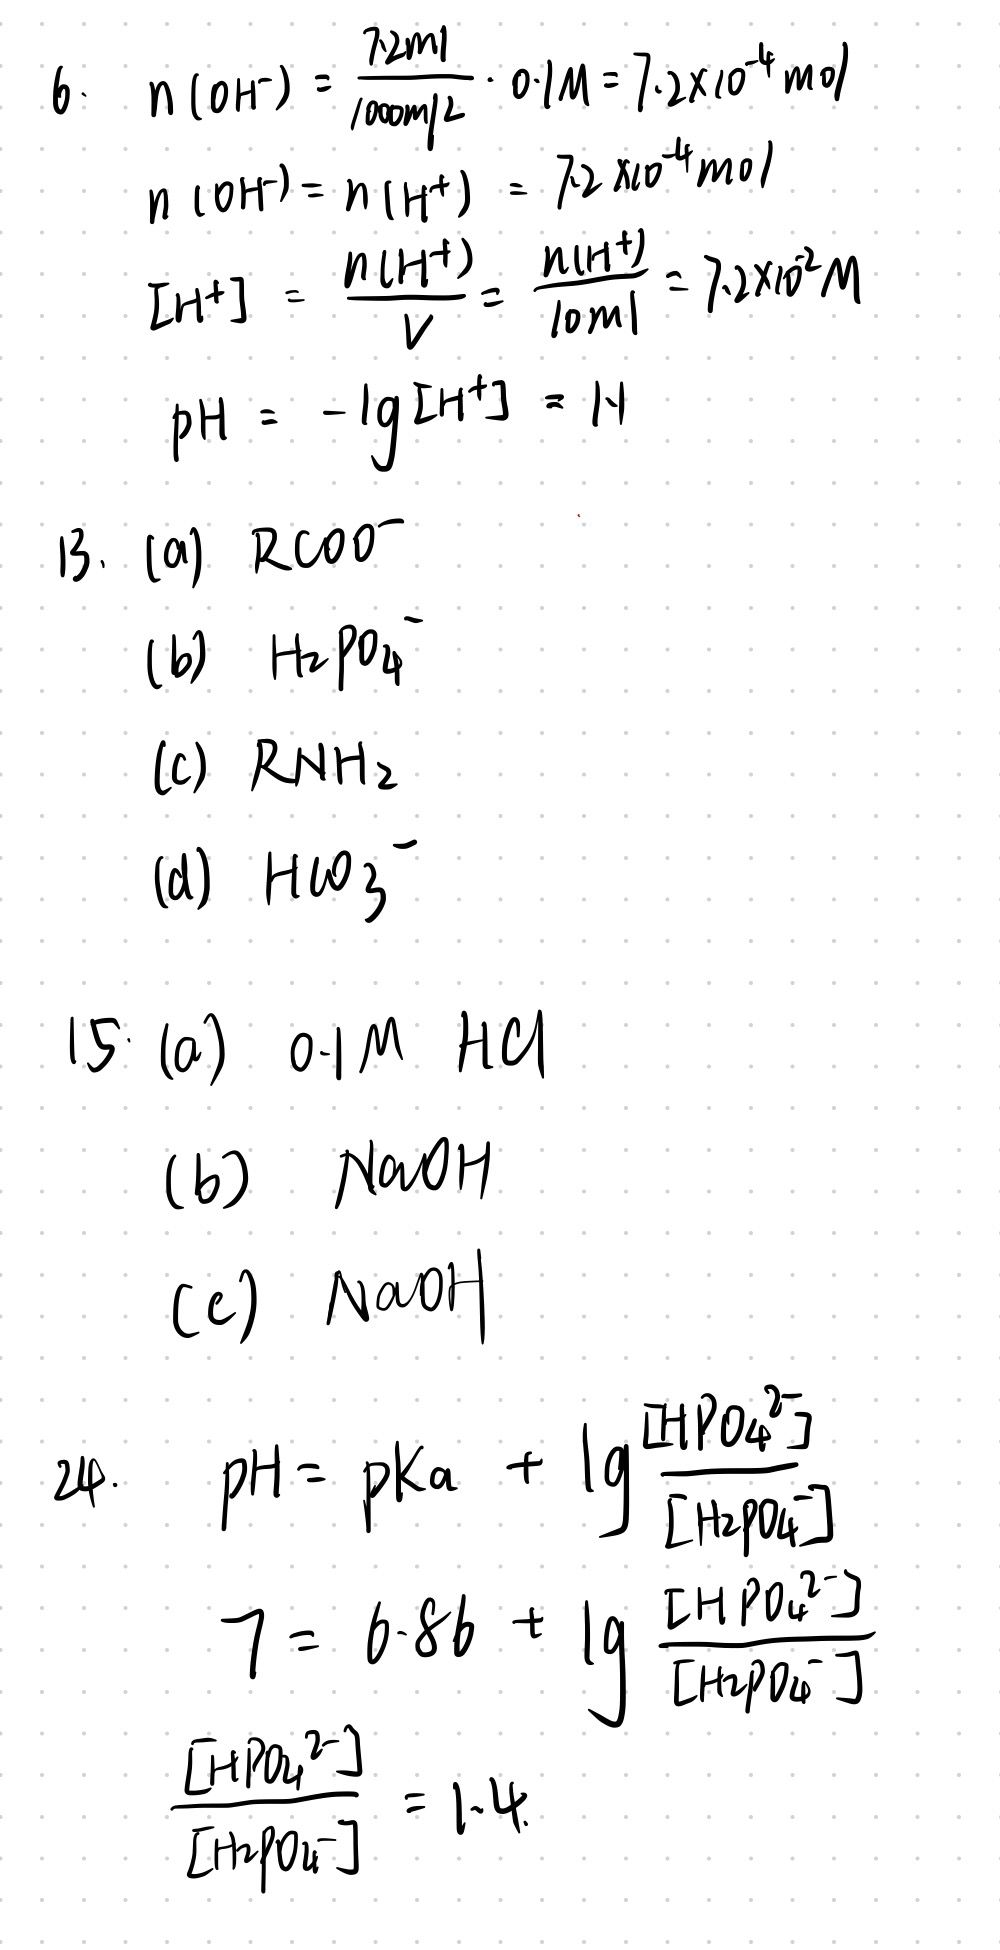 6. n(OH⁻) = 7.2ml/1000ml/L · 0.1M = 7.2×10⁻⁴ mol
n(OH⁻) = n(H⁺) = 7.2×10⁻⁴ mol
[H⁺] = n(H⁺)/V = n(H⁺)/10ml = 7.2×10⁻² M
pH = -lg[H⁺] = 1.1
13. (a) RCOO⁻
(b) H₂PO₄⁻
(c) RNH₂
(d) HCO₃⁻
15. (a) 0.1M HCl
(b) NaOH
(c) NaOH
24. pH = pKa + lg [HPO₄²⁻]/[H₂PO₄⁻]
7 = 6.86 + lg [HPO₄²⁻]/[H₂PO₄⁻]
[HPO₄²⁻]/[H₂PO₄⁻] = 1.4.